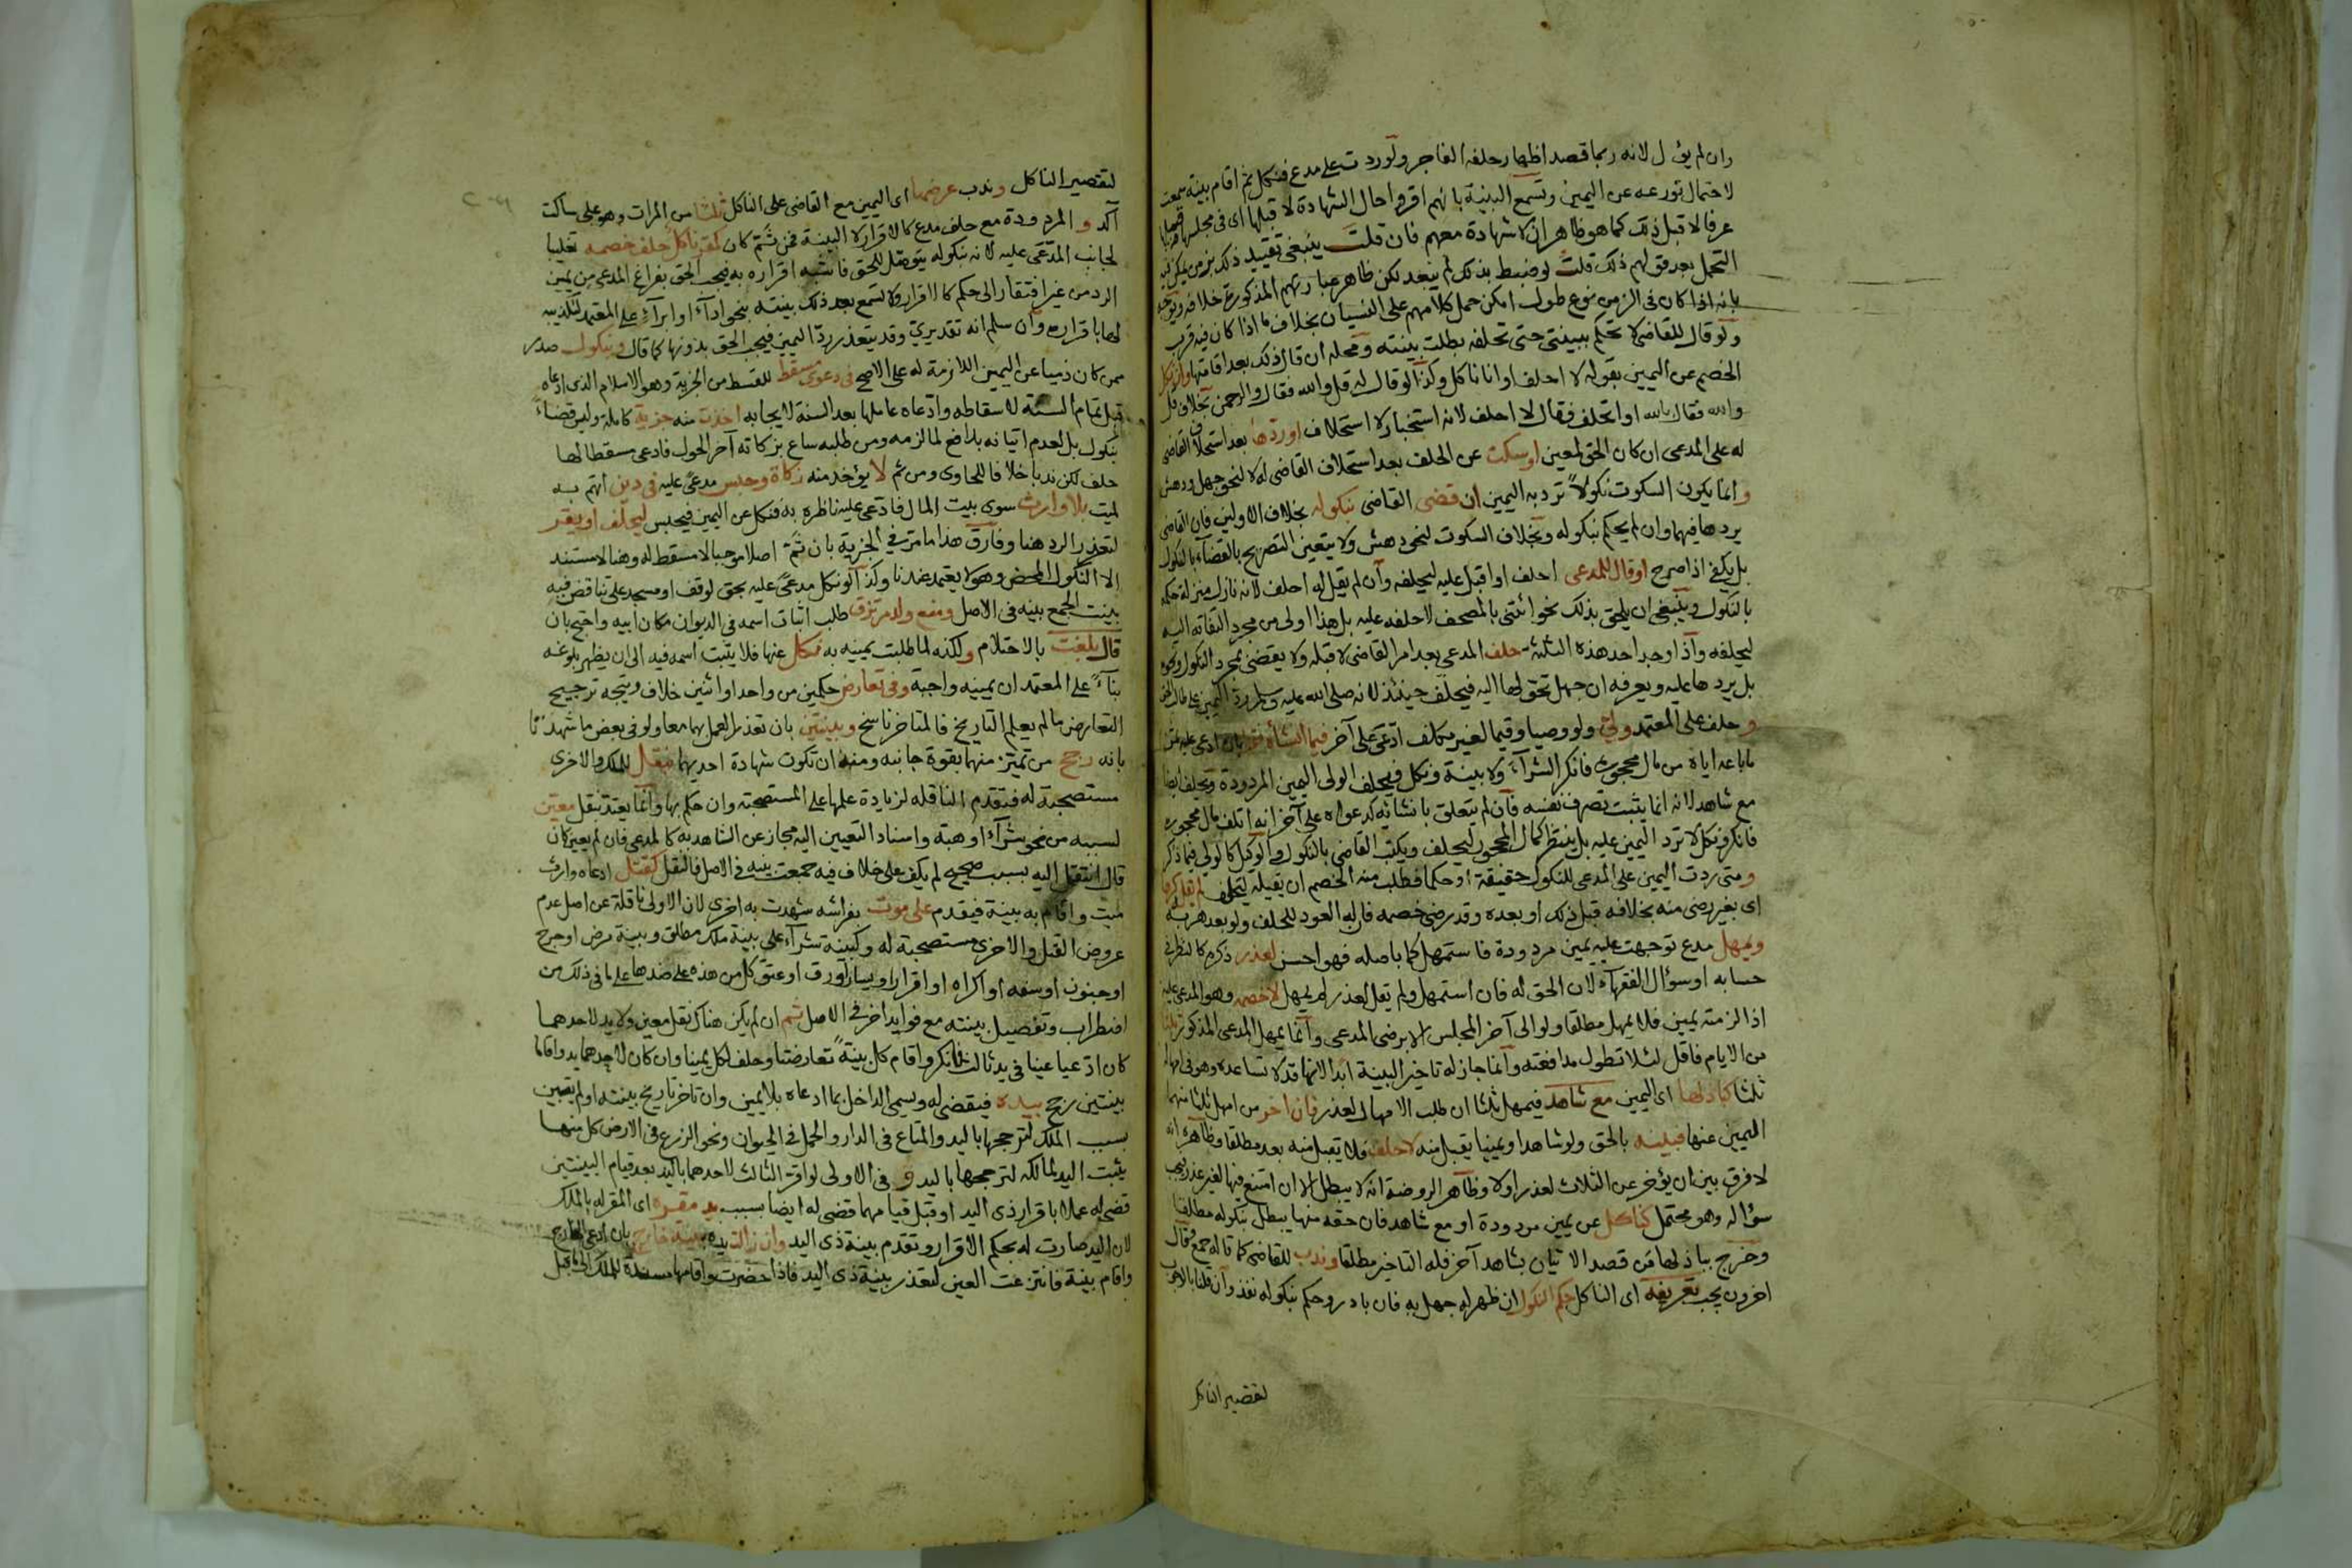 وان لم يؤل لانه ربما قصد اظهار حلفه الفاجر ولو ردت على مدع فنكل ثم اقام بينة سمعت
لاحتمال تورعه عن اليمين وتسمع البينة بانهم اقروا حال الشهادة لا قبلها اى فى مجلسها
عرفا لا قبل ذلك كما هو ظاهر ان لا شهادة معهم فان قلت ينبغى تقييد ذلك بزمن يمكن فيه
التحمل بعد قولهم ذلك قلت لو ضبط بذلك لم يبعد لكن ظاهر عبارتهم المذكورة خلافه ويوجه
بانه اذا كان فى الزمن نوع طول امكن حمل كلامهم على النسيان بخلاف ما اذا كان فيه قرب
ولو قال للقاضى لا تحكم ببينتى حتى تحلفه بطلت بينته ومحله ان قال ذلك بعد اقامتها وان نكل
الخصم عن اليمين بقوله لا احلف او انا ناكل وكذا لو قال له قل والله فقال والرحمن بخلاف قل
والله فقال بالله او اتحلف فقال لا احلف لانه استخبار لا استحلاف او ردها بعد استحلاف القاضى
له على المدعى ان كان الحق لمعين او سكت عن الحلف بعد استحلاف القاضى له لا لنحو جهل ودهش
وانما يكون السكوت نكولا ترد به اليمين ان قضى القاضى بنكوله بخلاف الاولين فان القاضى
يردها فيهما وان لم يحكم بنكوله وبخلاف السكوت لنحو دهش ولا يتعين التصريح بالقضاء بالنكول
بل يكفى اذا صرح او قال للمدعى احلف او اقبل عليه ليحلفه وان لم يقل له احلف لانه نازل منزلة حكمه
بالنكول وينبغى ان يلحق بذلك نحو ائتنى بالمصحف لاحلفه عليه بل هذا اولى من مجرد التفاته اليه
ليحلفه واذا وجد احد هذه الثلاثة حلف المدعى بعد امر القاضى لا قبله ولا يقضى بمجرد النكول ونحوه
بل يردها عليه ويعرفه ان جهل تحولها اليه فيحلف حينئذ لانه صلى الله عليه وسلم رد اليمين على طالب الحق
وحلف على المعتمد ولى ولو وصيا وقيما لغير مكلف ادعى على آخر فيما انشأه بان ادعى عليه ثمن
ما باعه اياه من مال محجوره فانكر الشراء ولا بينة ونكل فيحلف الولى اليمين المردودة ويحلف ايضا
مع شاهد لانه انما يثبت تصرف نفسه فان لم يتعلق بانشائه كدعواه على آخر انه اتلف مال محجوره
فانكر ونكل لا ترد اليمين عليه بل ينتظر كمال المحجور ليحلف ويكتب القاضى بالنكول والوكيل كالولى فيما ذكر
ومتى ردت اليمين على المدعى للنكول حقيقة او حكما فطلب منه الخصم ان يقيله ليحلف لم يقل كرها
اى بغير رضى منه بخلافه قبل ذلك او بعده وقد رضى خصمه فان له العود للحلف ولو بعد هربه
ويمهل مدع توجهت عليه يمين مردودة فاستمهل كما باصله فهو احسن لعذر ذكره كالنظر فى
حسابه او سؤال الفقهاء لان الحق له فان استمهل ولم تقل لعذر لم يمهل لا خصمه وهو المدعى عليه
اذا لزمته يمين فلا يمهل مطلقا ولو الى آخر المجلس الا برضى المدعى وانما يمهل المدعى المذكور ثلثا
من الايام فاقل لئلا تطول مدافعته وانما جاز له تاخير البينة ابدا لانها قد لا تساعده وهو فى امهاله
ثلثا كباذلها اى اليمين مع شاهد فيمهل ثلثا ان طلب الامهال لعذر فان اخر من امهل ثلثا منهما
اليمين عنها فبينة بالحق ولو شاهدا ويمينا يقبل منه لا حلف فلا يقبل منه بعد مطلقا وظاهره انه
لا فرق بين ان يؤخر عن الثلاث لعذر او لا وظاهر الروضة انه لا يبطل الا ان امتنع فيها لغير عذر يجب
سؤاله وهو محتمل كناكل عن يمين مردودة او مع شاهد فان حقه منها يبطل بنكوله مطلقا
وخرج بباذلها من قصد الاتيان بشاهد آخر فله التاخير مطلقا وندب للقاضى كما قاله جمع وقال
اخرون يجب تعريفه اى الناكل حكم النكول ان ظهر له جهل به فان بادر وحكم بنكوله نفذ وان قلنا بالوجوب
لتقصير الناكل
لتقصير الناكل وندب عرضها اى اليمين مع القاضى على الناكل ثلثا من المرات وهو على ساكت
آكد والمردودة مع حلف مدع كالاقرار لا البينة فمن ثم كان كمقر ناكل حلف خصمه تغليبا
لجانب المدعى عليه لانه بنكوله يتوصل للحق فاشبه اقراره به فيجب الحق بفراغ المدعى من يمين
الرد من غير افتقار الى حكم كالاقرار ولا تسمع بعد ذلك بينته بنحو اداء او ابراء على المعتمد لتكذيبه
لها باقراره وان سلم انه تقديرى وقد يتعذر رد اليمين فيجب الحق بدونها كما قال وبنكول صدر
ممن كان ذميا عن اليمين اللازمة له على الاصح فى دعوى مسقط للقسط من الجزية وهو الاسلام الذى ادعاه
قبل تمام السنة لاسقاطه وادعاه عاملها بعد السنة لايجابه اخذت منه جزية كاملة وليس قضاء
بنكول بل لعدم اتيانه بدافع لما لزمه ومن طلبه ساع بزكاته آخر الحول فادعى مسقطا لها
حلف لكن ندبا خلافا للحاوى ومن ثم لا يؤخذ منه زكاة وحبس مدعى عليه فى دين اتهم به
لميت بلا وارث سوى بيت المال فادعى عليه ناظره به فنكل عن اليمين فيحبس ليحلف او يقر
لتعذر الرد هنا وفارق هذا ما مر فى الجزية بان ثم اصلا موجبا لا مسقط له وهنا لا مستند
الا النكول المحض وهو لا يعتمد عندنا وكذا لو نكل مدعى عليه بحق لوقف او مسجد على تناقض فيه
بينت الجمع بينه فى الاصل ومنع ولد مرتزق طلب اثبات اسمه فى الديوان مكان ابيه واحتج بان
قال بلغت بالاحتلام ولكنه لما طلبت يمينه به فنكل عنها فلا يثبت اسمه فيه الى ان يظهر بلوغه
بناء على المعتمد ان يمينه واجبة وفى تعارض حكمين من واحد او اثنين خلاف ويتجه ترجيح
التعارض ما لم يعلم التاريخ فالمتاخر ناسخ وببينتين بان تعذر العمل بهما معا ولو فى بعض ما شهدتا
بانه رجح من تميز منهما بقوة جانبه ومنه ان تكون شهادة احديهما بنقل للملك والاخرى
مستصحبة له فتقدم الناقلة لزيادة علمها على المستصحبة وان حكم بها وانما يعتد بنقل معين
لسببه من نحو شراء او هبة واسناد التعيين اليه مجاز عن الشاهد به كالمدعى فان لم يعين كان
قال انتقل اليه بسبب صحيح لم يكف على خلاف فيه جمعت بينه فى الاصل فالنقل كقتل ادعاه وارث
ميت واقام به بينة فيقدم على موت بفراشه شهدت به اخرى لان الاولى ناقلة عن اصل عدم
عروض القتل والاخرى مستصحبة له وكبينة شراء على بينة ملك مطلق وبينة مرض او جرح
او جنون او سفه او اكراه او اقرار او يسار او رق او عتق كل من هذه على ضدها على ما فى ذلك من
اضطراب وتفصيل بينته مع فوايد اخر فى الاصل ثم ان لم يكن هناك نقل معين ولا يد لاحدهما
كان ادعيا عينا فى يد ثالث فانكر واقام كل بينة تعارضتا وحلف لكل يمينا وان كان لاحدهما يد واقاما
بينتين رجح بيده فيقضى له ويسمى الداخل بما ادعاه بلا يمين وان تاخر تاريخ بينته او لم يتبين
سبب الملك لترجحها باليد والمتاع فى الدار والحمل فى الحيوان ونحو الزرع فى الارض كل منها
يثبت اليد لمالكه لترجحها باليد و فى الاولى لو اقر الثالث لاحدهما باليد بعد قيام البينتين
قضى له عملا باقرار ذى اليد او قبل قيامهما قضى له ايضا بسبب يد مقره اى المقر له بالملك
لان اليد صارت له بحكم الاقرار وتقدم بينة ذى اليد وان زالت يده ببينة خارج بان ادعى الخارج
واقام بينة فانتزعت العين لتعذر بينة ذى اليد فاذا حضرت واقامها مسندة للملك الى ما قبل